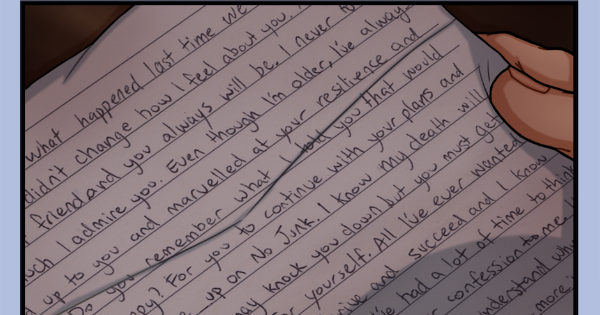 what happened last time we
didn't change how I feel about you.
friend and you always will be. I never
much I admire you. Even though I'm older, I've always
up to you and marvelled at your resilience and
Do you remember what I told you that would
? For you to continue with your plans and
up on No Junk. I know my death will
may knock you down but you must get
yourself. All I've ever wanted
and succeed and I know
I've had a lot of time to think
confession to me
understand
more